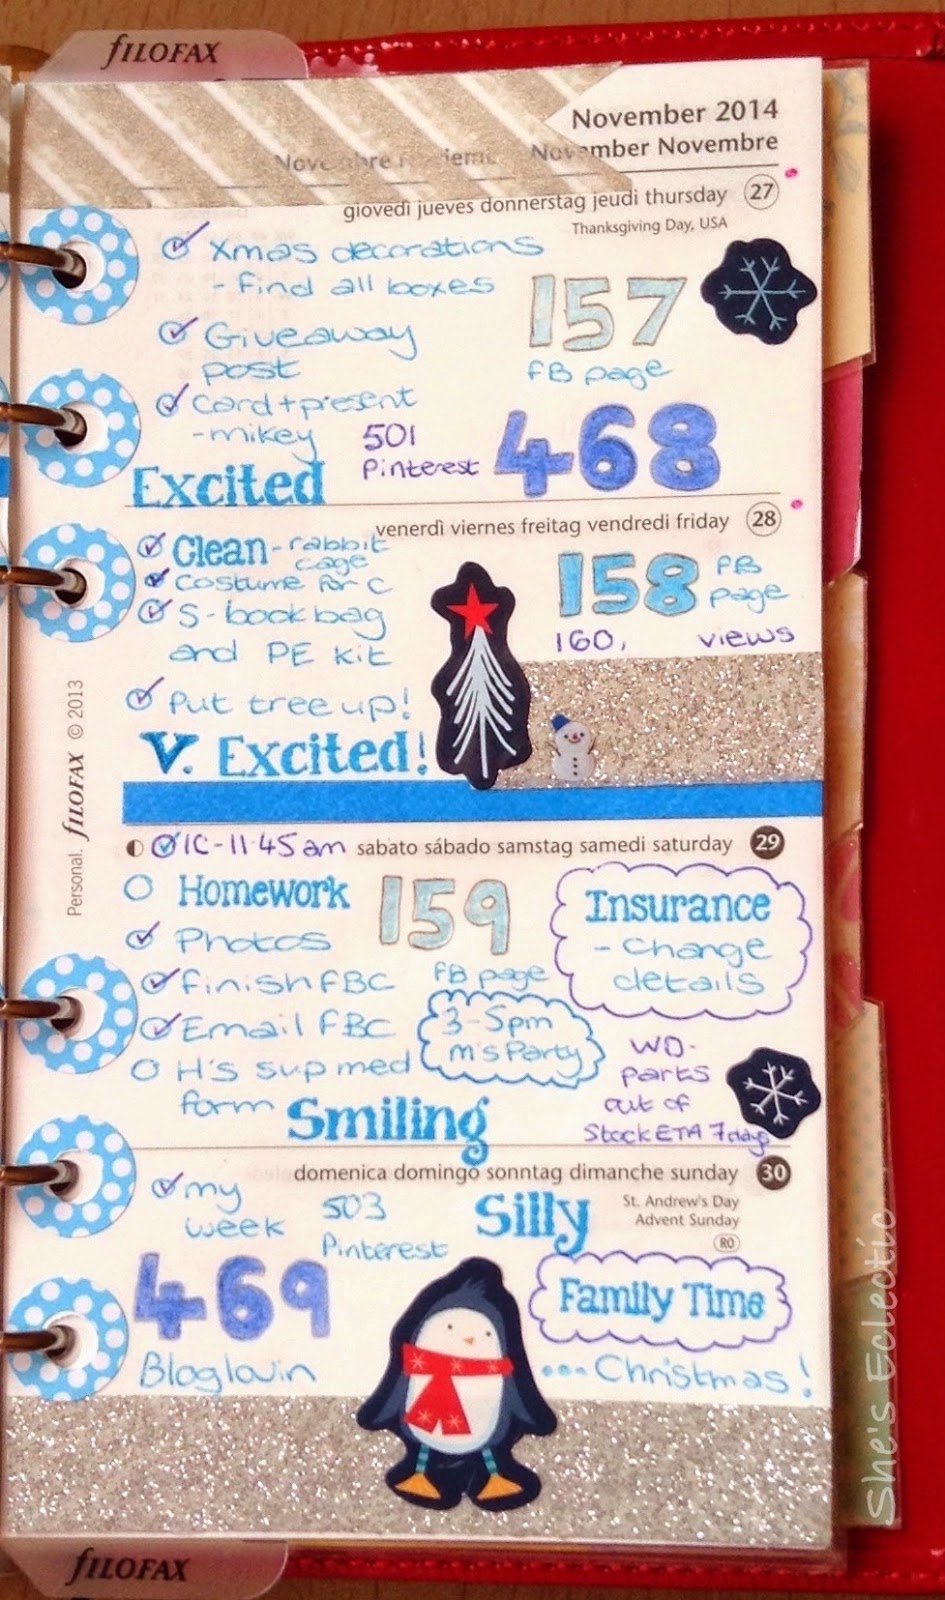 fILOFAX
November 2014
November Novembre
giovedì jueves donnerstag jeudi thursday 27
Thanksgiving Day, USA
Xmas decorations
- find all boxes
157
FB page
Giveaway
post
Card + present
- mikey
501
Pinterest
468
Excited
venerdì viernes freitag vendredi friday 28
Clean - rabbit
cage
Costume for C
S - book bag
and PE kit
158 FB
page
160, views
Put tree up!
V. Excited!
Personal. fILOFAX © 2013
IC - 11.45am sabato sábado samstag samedi saturday 29
Homework
159
FB page
Insurance
- Change
details
Photos
finish FBC
Email FBC
3-5pm
m's Party
H's sup med
form
WD-
parts
out of
Stock ETA 7 days
Smiling
domenica domingo sonntag dimanche sunday 30
St. Andrew's Day
Advent Sunday
RO
my
week
503
Pinterest
Silly
469
Bloglovin
Family Time
...Christmas!
She's Eclectic
fILOFAX